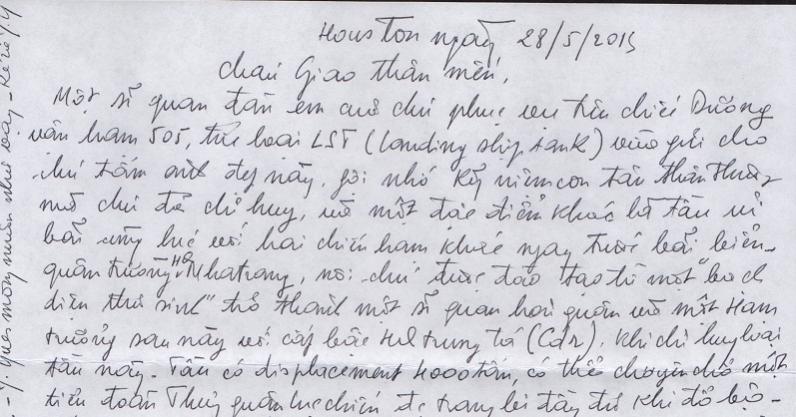 Houston ngày 28/5/2015
cháu Giao thân mến,
Một sĩ quan đàn em cũ chú phục vụ trên chiếc Dương
vận hạm 505, thuộc loại LST (Landing ship tank) vừa gửi cho
chú tấm ảnh đẹp này, gợi nhớ kỷ niệm con tàu thân thương
mà chú đã chỉ huy, và một đặc điểm khác là tàu ủi
bãi cùng lúc với hai chiến hạm khác ngay trước bãi biển
quân trường HQ Nhatrang, nơi chú được đào tạo từ một "bạch
diện thư sinh" trở thành một sĩ quan hải quân và một Hạm
trưởng sau này với cấp bậc HQ trung tá (Cdr), khi chỉ huy loại
tàu này. Tàu có displacement 4000 tấn, có thể chuyên chở một
tiểu đoàn Thủy quân lục chiến đ trang bị đầy đủ khi đổ bộ -
- Y. mong muốn như vậy -